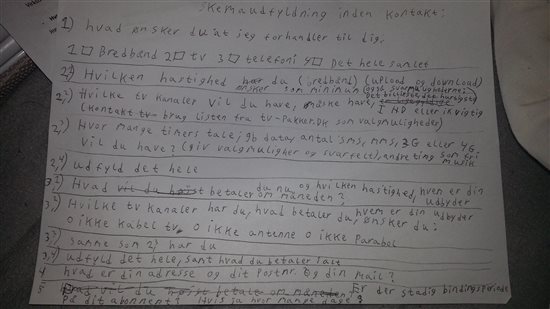 Skemaudfyldning inden kontakt:
1) hvad ønsker du at jeg forhandler til dig.
1 □ Bredbånd 2 □ tv 3 □ telefoni 4 □ Det hele samlet
2,1) Hvilken hastighed har du (bredbånd) (upload og download)
ønsker som minimum (også svarmuligheder
Det billigste, det hurtigste
2,2) Hvilke tv kanaler vil du have, måske have, I HD eller ikvigtig
(kontakt tv brug listen fra tv-Pakker.DK som valgmuligheder)
2,3) Hvor mange timers tale, gb data, antal sms, mms, 3G eller 4G
vil du have? (giv valgmuligher og svarfelt), andre ting som fri
musik
2,4) udfyld det hele
3,1) Hvad betaler du nu og hvilken hastighed, hvem er din
om måneden? udbyder
3,2) Hvilke tv kanaler har du, hvad betaler du, hvem er din udbyder
ønsker du:
0 ikke kabel tv 0 ikke antenne 0 ikke parabel
3,3) samme som 2,3 har du
3,4) udfyld det hele, samt hvad du betaler i alt
4 hvad er din adresse og dit Postnr. Og din Mail?
5 hvad vil du betale om måneden, Er der stadig bindingsperiode
på dit abonnent? Hvis ja hvor mange dage?